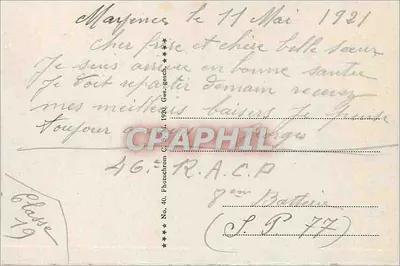 Mayence le 11 Mai 1921
Cher frère et chère belle sœur
Je suis arrivé en bonne santer
Je doit repartir demain recevez
mes meilleurs baisers Je pense
toujour
46e R.A.C.P
8em Batterie
(S P 77)
Classe
19
No. 40. Photochrom 1920. Ges. gesch.
CPARAMA